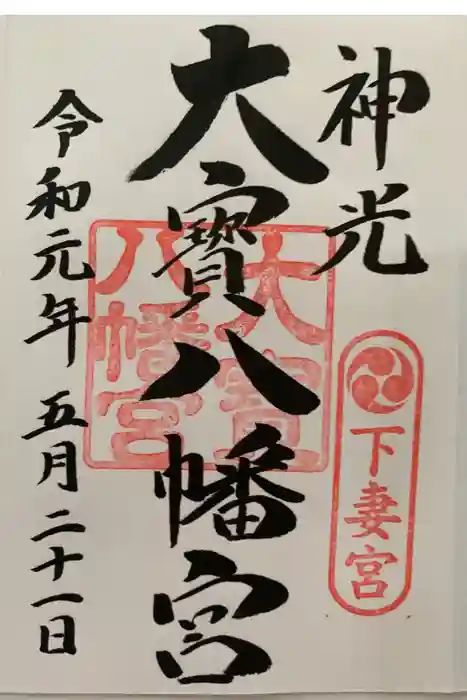 神光
下妻宮
大寶八幡宮
大宝
八幡宮
令和元年五月二十一日